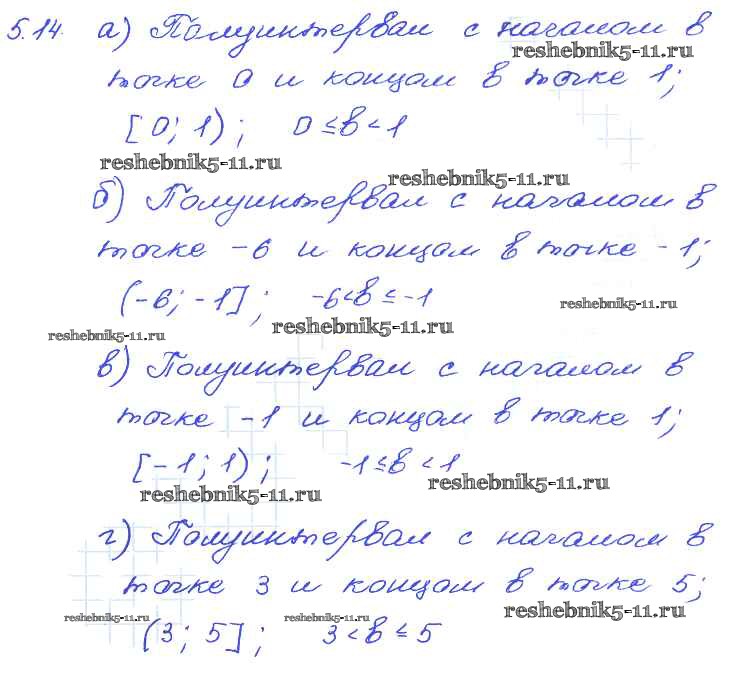 5.14. а) Полуинтервал с началом в
reshebnik5-11.ru
точке 0 и концом в точке 1;
[0; 1); 0 ≤ b < 1
reshebnik5-11.ru
reshebnik5-11.ru
б) Полуинтервал с началом в
точке -6 и концом в точке -1;
(-6; -1]; -6 < b ≤ -1
reshebnik5-11.ru
reshebnik5-11.ru
reshebnik5-11.ru
в) Полуинтервал с началом в
точке -1 и концом в точке 1;
[-1; 1); -1 ≤ b < 1
reshebnik5-11.ru
reshebnik5-11.ru
г) Полуинтервал с началом в
точке 3 и концом в точке 5;
reshebnik5-11.ru
reshebnik5-11.ru
reshebnik5-11.ru
(3; 5]; 3 < b ≤ 5